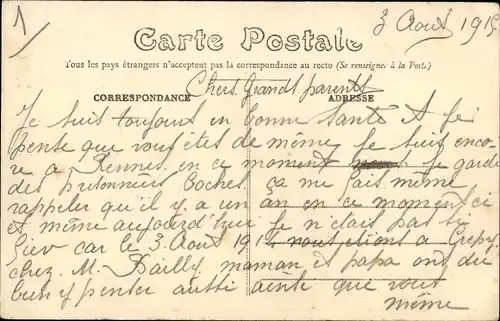 1
3 Aout 1915
Carte Postale
Tous les pays étrangers n'acceptent pas la correspondance au recto (Se renseigner à la Poste)
Chers Grands parents
CORRESPONDANCE ADRESSE
Je suis toujours en bonne santé et je
pense que vous êtes de même je suis enco-
re a Rennes en ce moment je garde
des prisonniers boches ça me fais même
rappeler qu'il y a un an en ce moment ci
et même aujourd'hui je n'étais pas si
fier car le 3 Aout 1914 nous étions a Crepy
chez M. Bailly, maman et papa ont dû
bien y penser aussi ainsi que vous
même